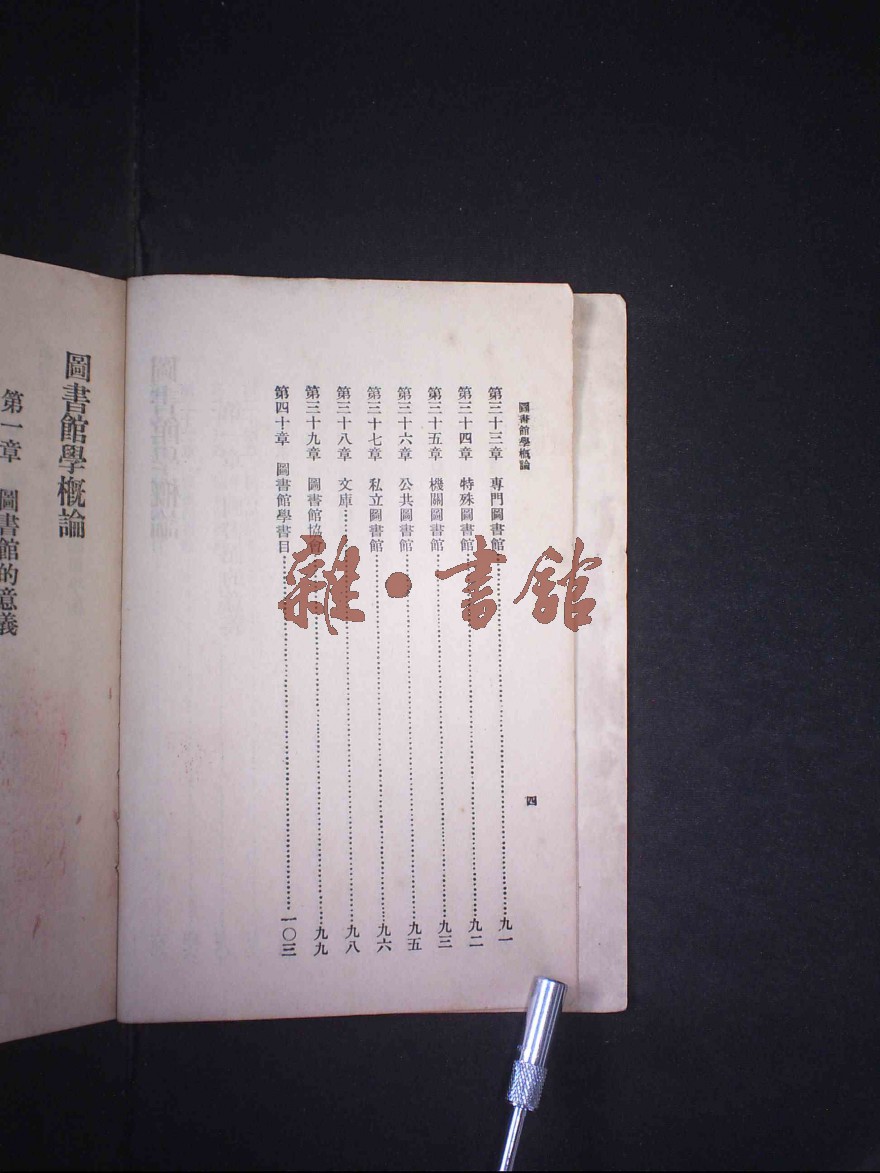 圖書館學概論
四
第三十三章 專門圖書館……九一
第三十四章 特殊圖書館……九二
第三十五章 機關圖書館……九三
第三十六章 公共圖書館……九五
第三十七章 私立圖書館……九六
第三十八章 文庫……九八
第三十九章 圖書館協會……九九
第四十章 圖書館學書目……一〇三
雜·書館
圖書館學概論
第一章 圖書館的意義